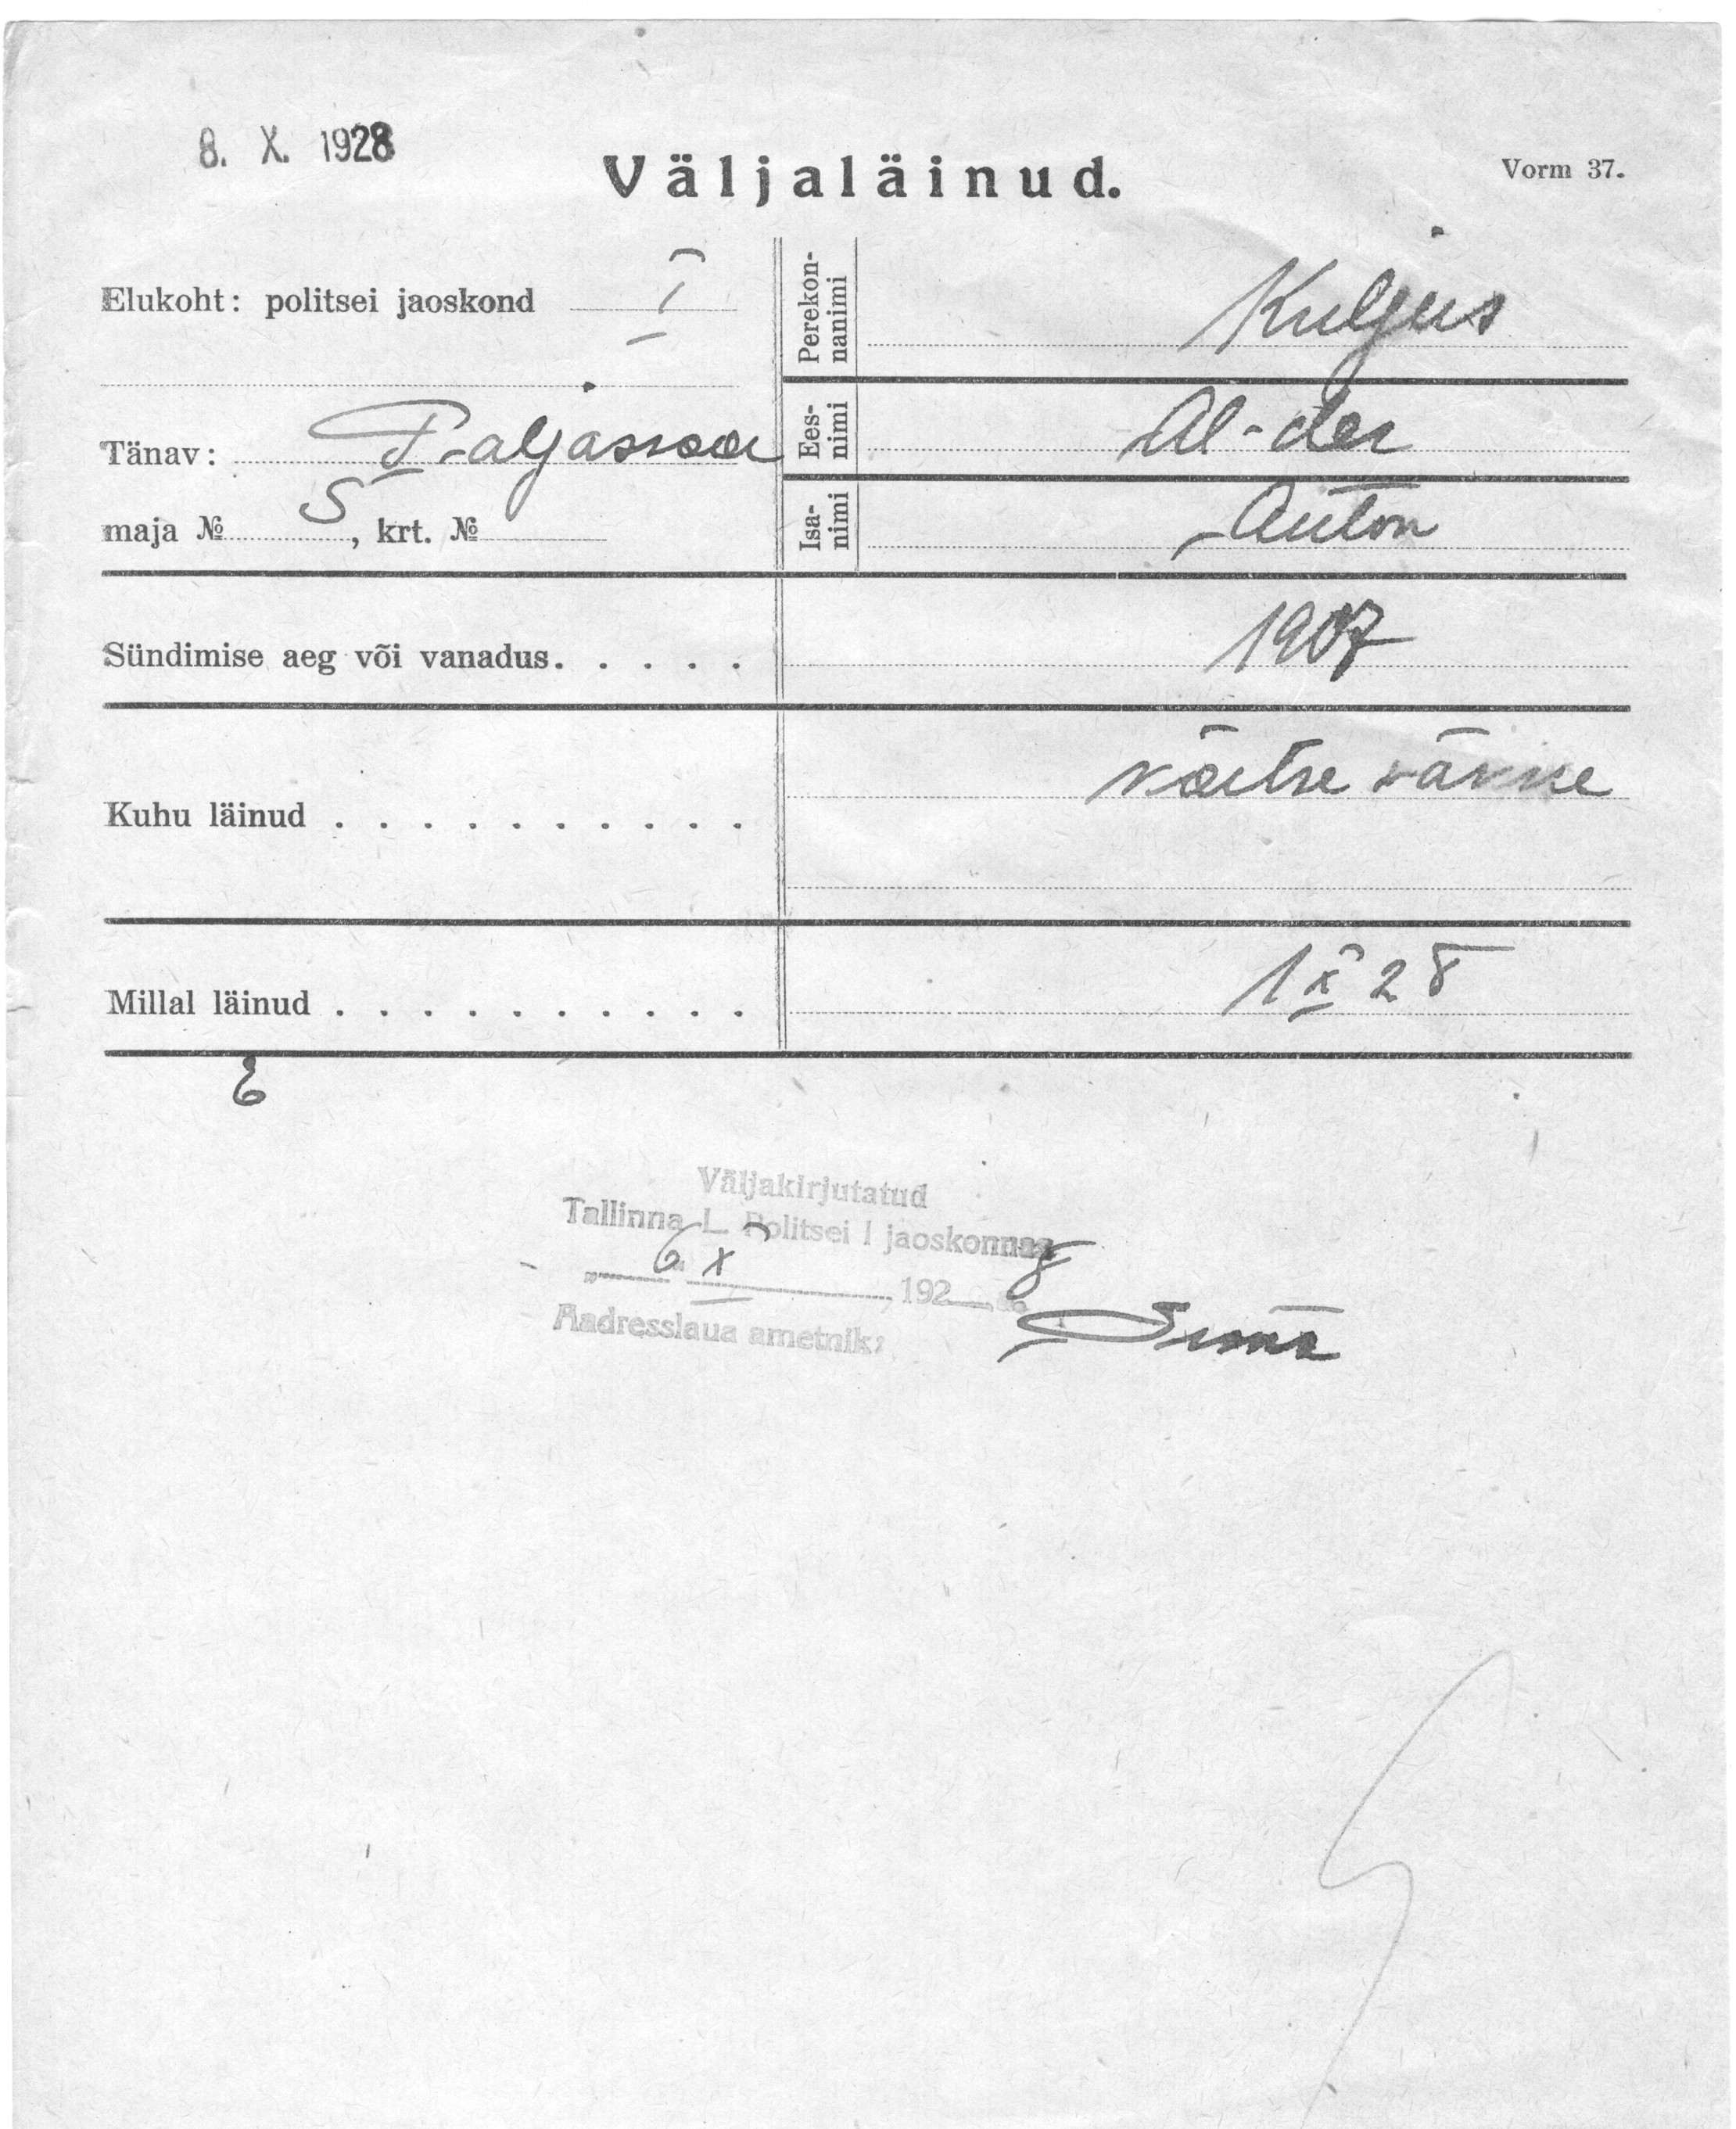 8. X. 1928
Väljaläinud.
Vorm 37.
Elukoht: politsei jaoskond I
Tänav: Paljassaar
maja № 5, krt. №
Perekon-
nanimi
Kuljus
Ees-
nimi
Al-der
Isa-
nimi
Anton
Sündimise aeg või vanadus. . . . . 1907
Kuhu läinud . . . . . . . . . . kaitse väkke
Millal läinud . . . . . . . . . . 1 X 28
Väljakirjutatud
Tallinna L. Politsei I jaoskonnas
„ 6 “ X 192 8 a.
Aadresslaua ametnik: